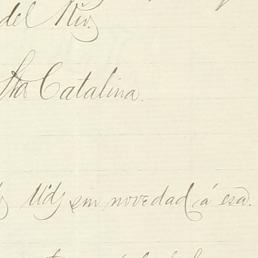 del Rio.
Sta Catalina.
Uds sin novedad á esa.